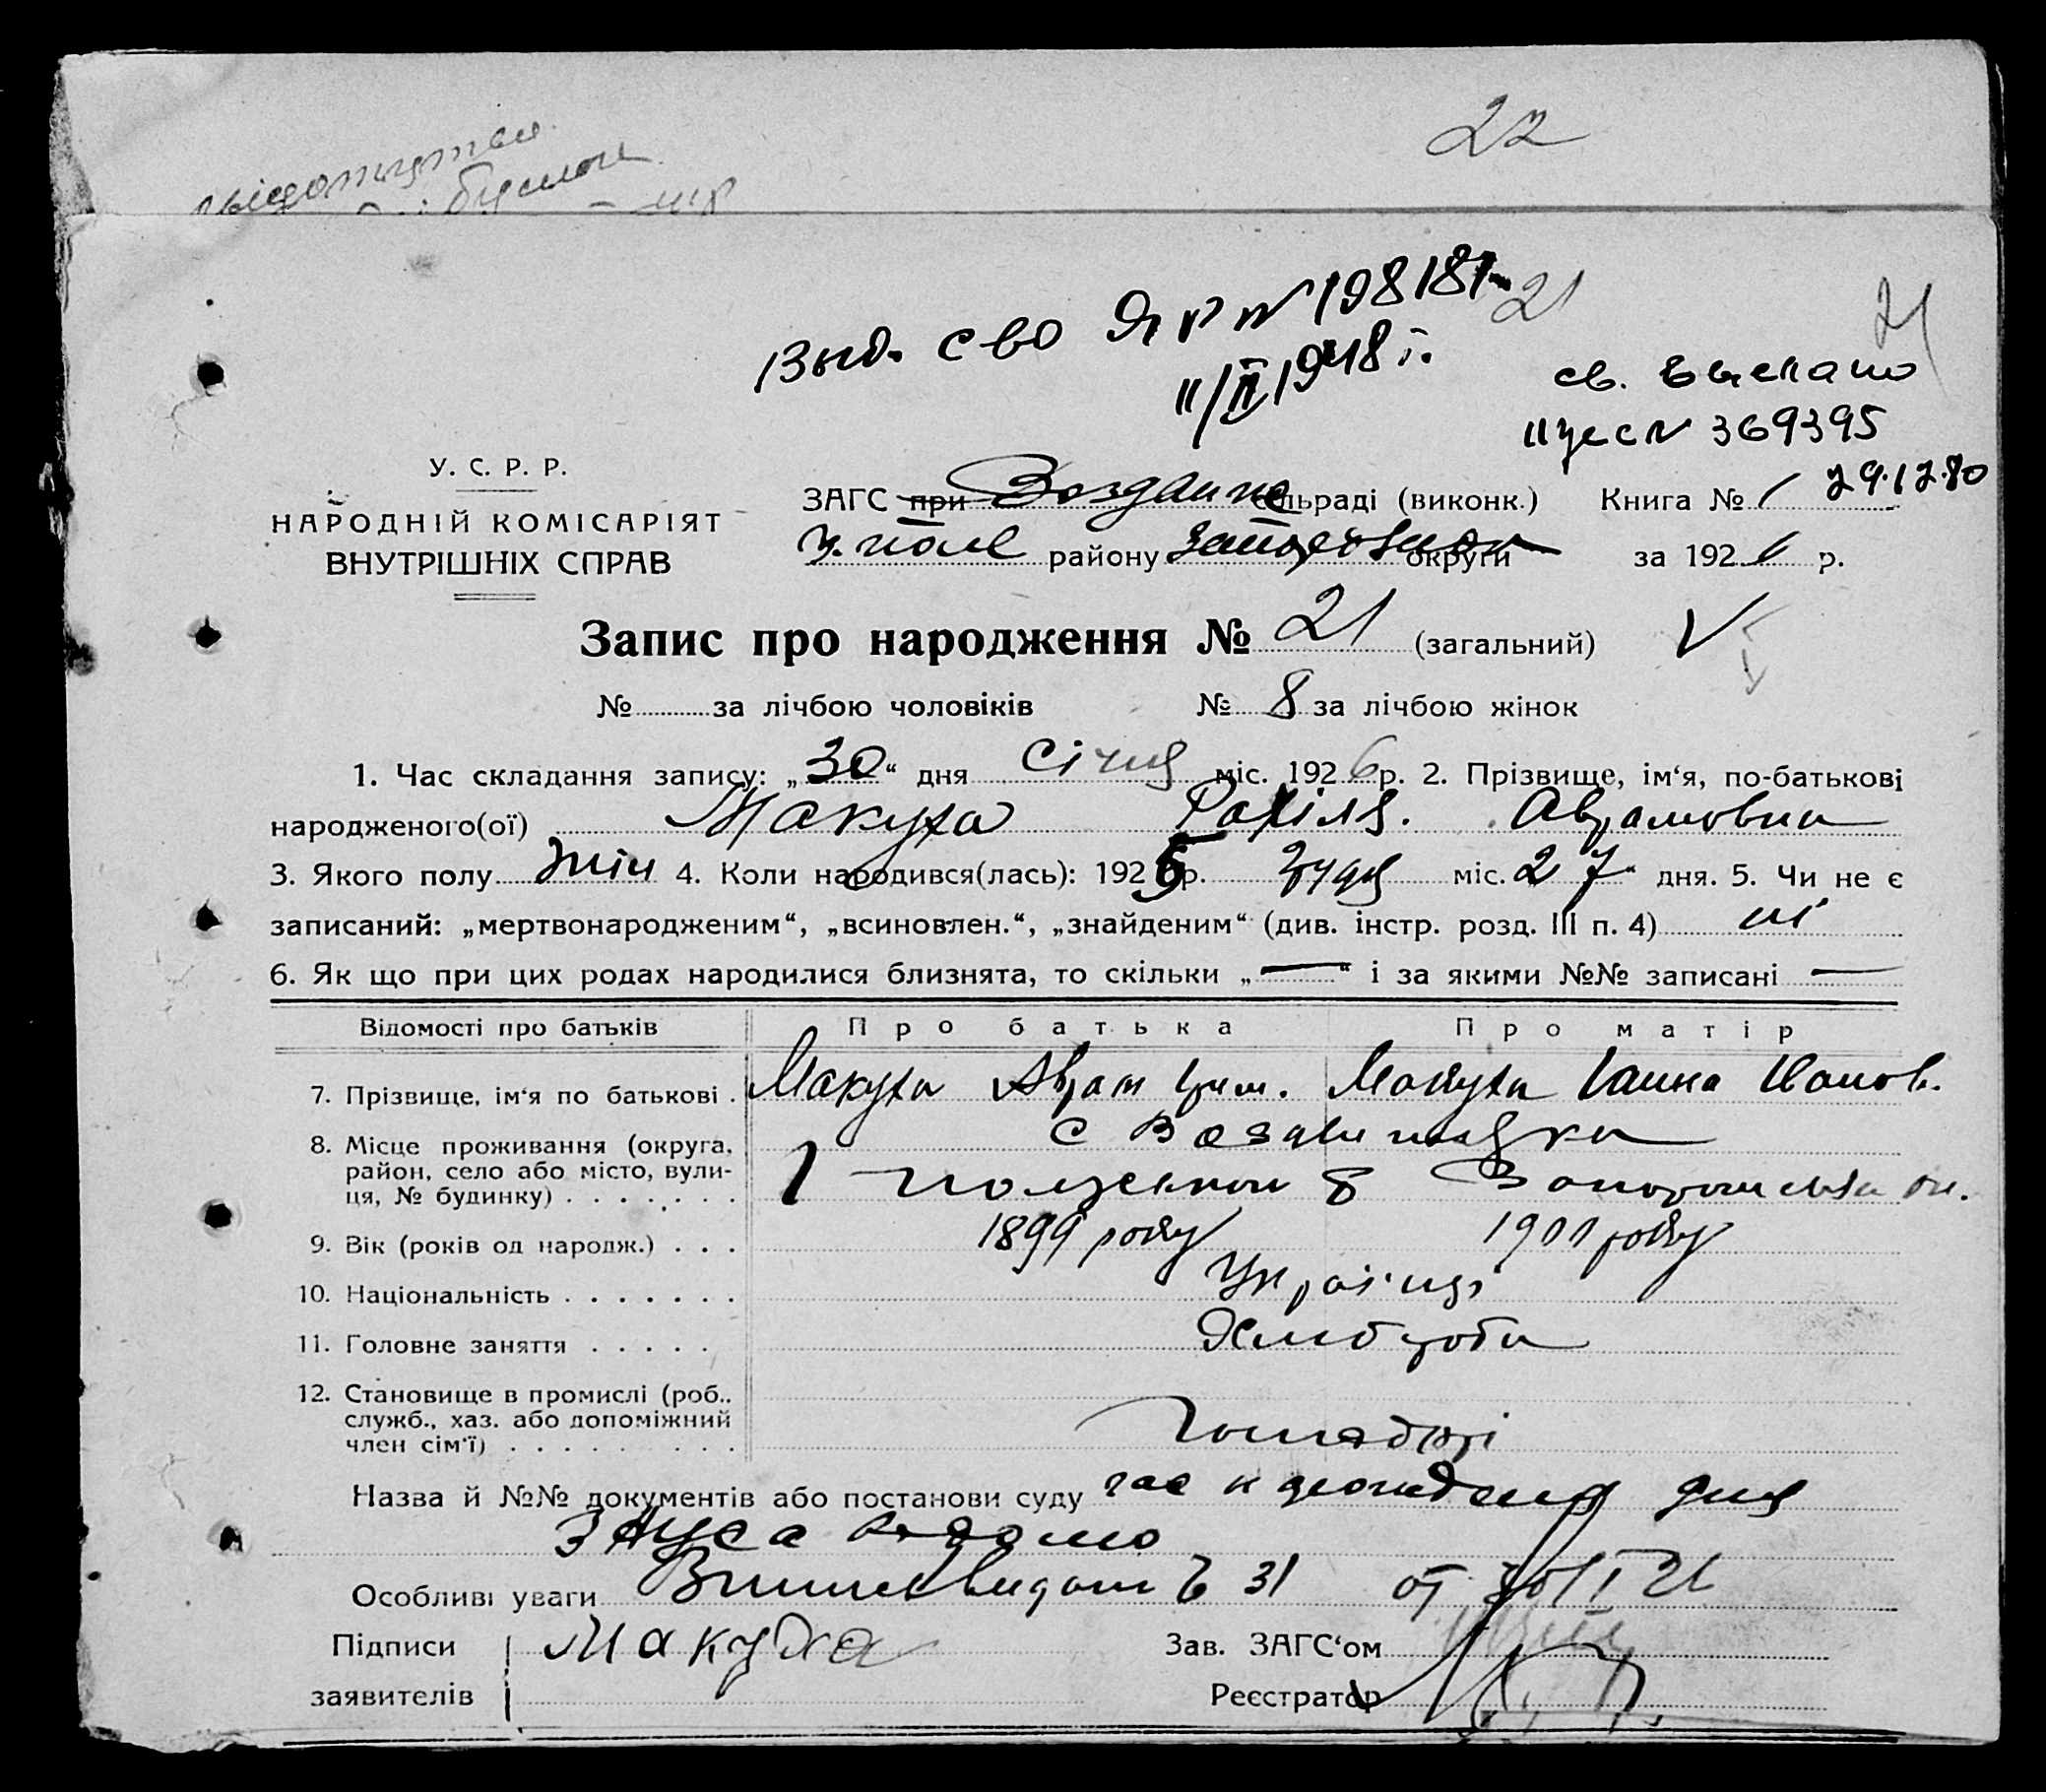 22
21
21
Выд. с во ЯР № 198187
11/II 1948 г.
св. выслано
369395
29.12.80
У. С. Р. Р.
НАРОДНІЙ КОМІСАРІЯТ
ВНУТРІШНІХ СПРАВ
ЗАГС при сільраді (виконк.) Книга № 1
району округи за 1926 р.
Запис про народження № 21 (загальний)
№ за лічбою чоловіків № 8 за лічбою жінок
1. Час складання запису: „30“ дня Січня міс. 1926 р. 2. Прізвище, ім‘я, по-батькові
народженого(ої) Макуха Рахіля. Аврамовна
3. Якого полу жін 4. Коли народився(лась): 1925 р. Грудня міс. 27 дня. 5. Чи не є
записаний: „мертвонародженим“, „всиновлен.“, „знайденим“ (див. інстр. розд. III п. 4) ні
6. Як що при цих родах народилися близнята, то скільки „—“ і за якими №№ записані —
Відомості про батьків Про батька Про матір
7. Прізвище, ім‘я по батькові . Макуха Аврам Макуха Ганна Іванов.
8. Місце проживання (округа,
район, село або місто, вули-
ця, № будинку) . . . . . . .
с Воздвижевка
9. Вік (років од народж.) . . . 1899 року 1901 року
10. Національність . . . . . . . Українці
11. Головне заняття . . . . . Хлібороби
12. Становище в промислі (роб.,
служб., хаз. або допоміжний
член сім‘ї) . . . . . . . . .
Господарі
Назва й №№ документів або постанови суду
З АУСа
Особливі уваги 31 от 30/I 26
Підписи Макуха Зав. ЗАГС‘ом
заявителів Реєстратор